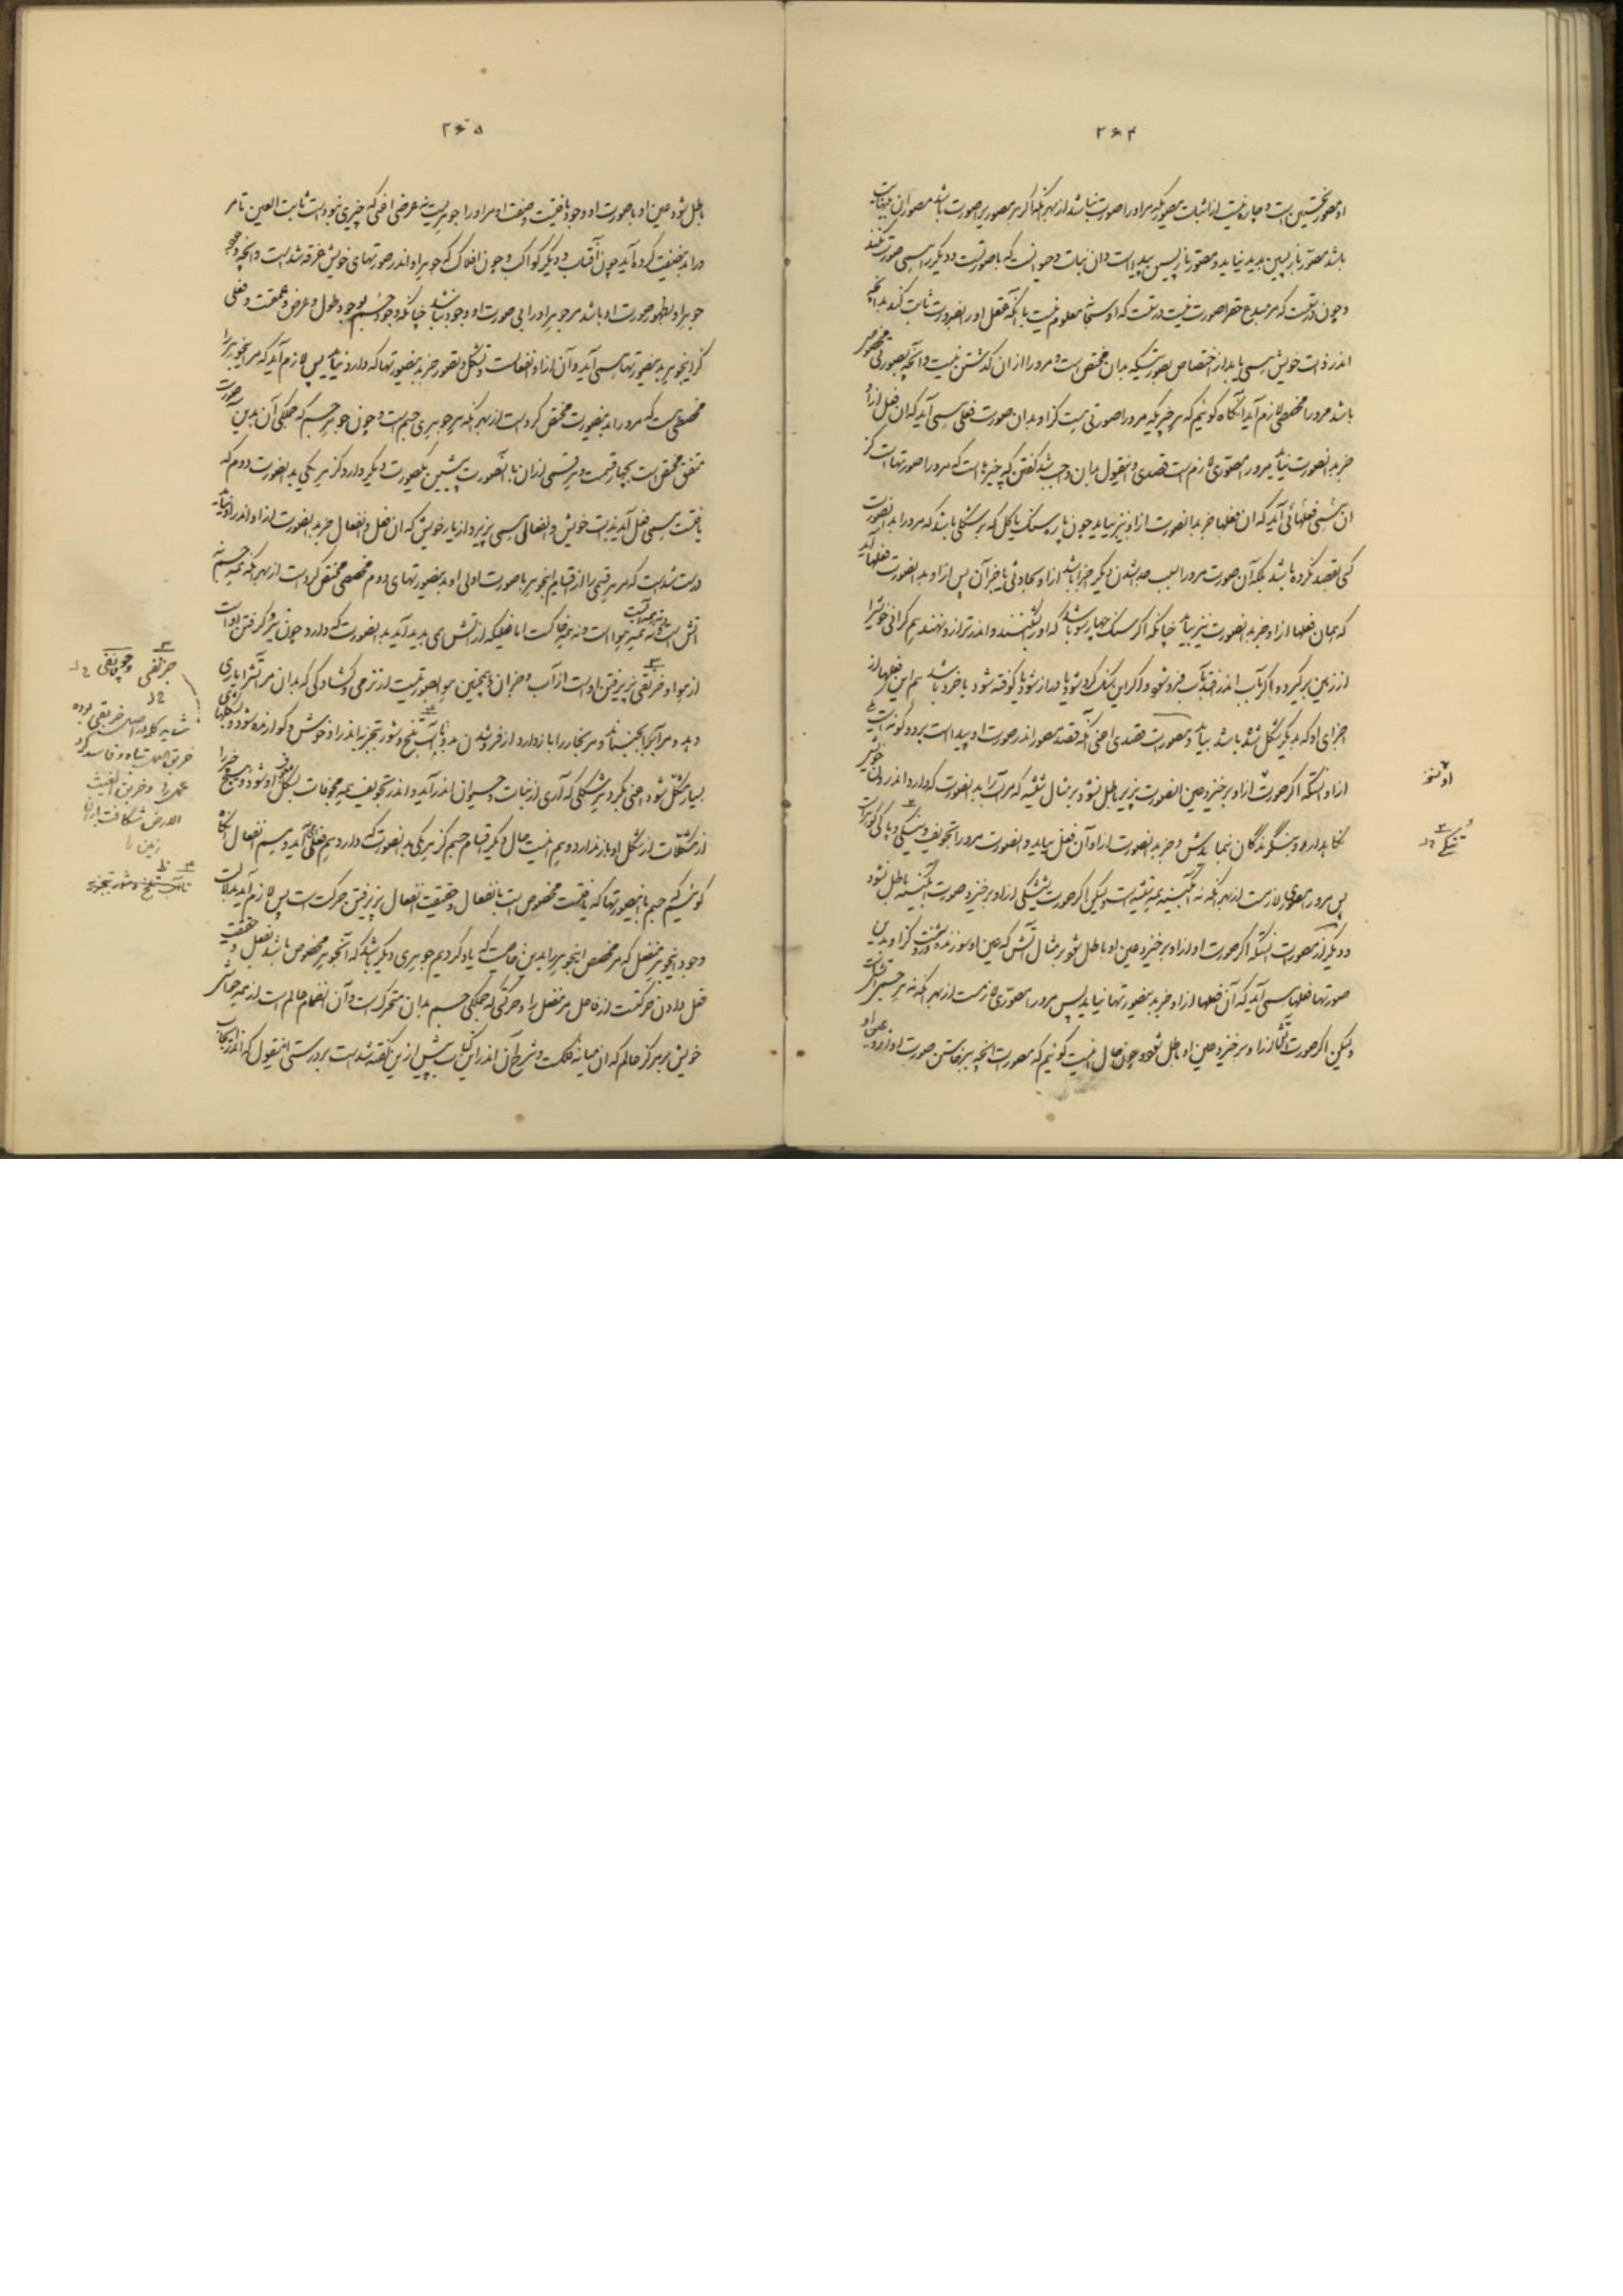 ۲۶۴
او مصور نخستین است و چاره نیست از اثبات مصوریکه مر او را صورت نباشد از بهر آنکه اگر هر مصوری را صورت باشد مصوران بی نهایت
باشد و مصور بازپسین پدید نیاید و مصور بازپسین پیداست و آن نبات و حیوانست که باصورتست و دیگر را همی صورت نکند
و چون درست که مر مبدع حق را صورت نیست درست که او سبحانه معلوم نیست با آنکه عقل او را بضرورت ثابت کند بدانچه
اندر ذات خویش همی یابد از اختصاص بصورتیکه بدان مختص است و مرورا از آن گذشتن نیست و آنچه بصورتی مخصوص
باشد مرورا مخصصی لازم آید آنگاه گوئیم که هر چیزیکه مرورا صورتی هست کز او بدان صورت فعلی همی آید که آن فعل از او
جز بدانصورت نیاید مرورا مصوری لازم است قصدی و بدینقول بدان واجب شد گفتن که چیزهاست که مرورا صورتهاست کز
آن همی فعلهائی آید که آن فعلها جز بدانصورت از او نیز بیاید چون پاره سنگ یا گل که بر شکلی باشد که مرورا بدانصورت
کسی بقصد نکرده باشد بلکه آن صورت مرورا بسبب جدا شدن دیگر جزها باشد از او بحادثی یا جز آن پس از او بدانصورت فعلها آید
که همان فعلها از او جز بدانصورت نیز بیاید چنانکه اگر سنگ چهارسو باشد که او را بشکنند و اندر ترازو نهند هم گرانی خویش را
از زمین برگیرد و اگر بآب اندر افتد بآب فرو شود و اگر این سنگ گرد شود یا دراز شود یا کوفته شود یا خرد باشد هم این فعلها از
اجزای او که بدیگر شکل شده باشد بیاید و مصورت بقصدی اعنی آنکه قصد مصور اندر صورت او پیداست بر دو گونه است یکی
از او آنستکه اگر صورت از او برخیزد عین آنصورت پذیر باطل نشود بر مثال شیشه که مر آنرا بدانصورت که دارد اندر
نگاه بدارد و بنگرندگان بنماید و جز بدانصورت از او آن فعل نیاید و آنصورت مرورا تجویف و تنگی و پاکی گوهر است
پس مرورا مصوری لازمست از بهر آنکه نه آبگینه همه شیشه است ولیکن اگر صورت شیشگی از او برخیزد صورت آبگینه باطل نشود
و دیگر از مصورت آنستکه اگر صورت او از او برخیزد عین او باطل شود بر مثال آتش که عین او سوزنده و روشنست کز او بدین
صورتها فعلها همی آید که آن فعلها از او جز بدینصورتها نیاید پس مرورا مصوری لازمست از بهر آنکه نه هر جسمی آتش است
ولیکن اگر صورت آتش از او برخیزد عین او باطل شود و چون حال اینست گوئیم که مصورت آنچه برخاستن صورت او از او عین او
او نسخه
تنکی خ ل
۲۶۵
باطل شود عین او باصورت او وجود یافتست و صنعت مر او را جوهریست نه عرضی اعنی که چیزی نبوده است ثابت العین تا مر
او را بدین صفت کرده آید چون آفتاب و دیگر کواکب و چون افلاک که جوهر او اندر صورتهای خویش غرقه شدست و آنچه وجود
جوهر او بظهور صورت او باشد مر جوهر او را بی صورت او وجود نباشد چنانکه وجود جسم بوجود طول و عرض و عمقست و فعلی
کز این جوهر بدینصورتها همی آید و آن از او انفعالست و تشکل و تصور جز بدینصورتها که دارد نیاید پس لازم آید که مر این جوهر را
مخصصی هست که مرورا بدینصورت مختص کردست از بهر آنکه نه هر جوهری جسم است و چون جوهر جسم که جملگی آن بدین صورت
متفق مختص است بچهار قسمست و هر قسمی از آن با آنصورت پیشین بصورت دیگر دارد کز هر یکی بدانصورت دوم که
یافتست همی فعل آید بذات خویش و انفعالی همی پذیرد از یار خویش که آن فعل و انفعال جز بدانصورت از او و اندر او نیاید
درست شدست که مر هر قسمی را از اقسام این جوهر باصورت اولی او بدینصورتهای دوم مخصصی مختص کردست از بهر آنکه نه همه جسم
آتش است و نه همه آبست و نه همه هواست و نه همه خاکست اما فعلیکه از آتش همی پدید آید بدانصورت که دارد چون برگرفتن او است
از هوا و خرتقی پذیرفتن او است از آب و جز آن و همچنین هوا بصورتیست از نرمی و گشادگی که بدان مر آتش را یاری
دهد و مر آبرا بجنباند و مر بخار را بازدارد از فرو شدن بدو تا آب تلخ و شور بتجزیه اندر او خوش و گوارنده شود و بشکلهای
بسیار متشکل شود اعنی بگرد هر شکلی که آری از نبات و حیوان اندر آید و اندر تجویف همه مجوفات بشکل مجوف او شود و هیچ چیز را
از متشکلات از شکل او باز ندارد و هم اینست حال دیگر اقسام جسم کز هر یکی بدانصورت که دارد هم فعلی آید و هم انفعال آنگاه
گوئیم که جسم با این صورتها که یافتست مخصوص است بانفعال و حقیقت انفعال پذیرفتن حرکت است پس لازم آید بدلالت
وجود این جوهر منفعل که مر مخصص این جوهر را بدین خاصیت که یاد کردیم جوهری دیگر باشد که آن جوهر مخصوص باشد بفعل و حقیقت
فعل دادن حرکتست از فاعل مر منفعل را و حرکتی که جملگی جسم بدان متحرکست و آن انضمام عالم است از همه حواشی
خویش بر مرکز عالم که آن میانه فلکست و شرح آن اندر این کتاب پیش از این گفته شدست بر درستی این قول که اندر ایجاب
جز تفی وجه تفی خ ل
خ ل
شاید کلمه در اصل خریقی بوده
خرق العمل تباه و فاسد کرد
عمل را و خرق الغیث
الارض شکافت باران
زمین را
ظ
تا آب تلخ و شور بتجزیه